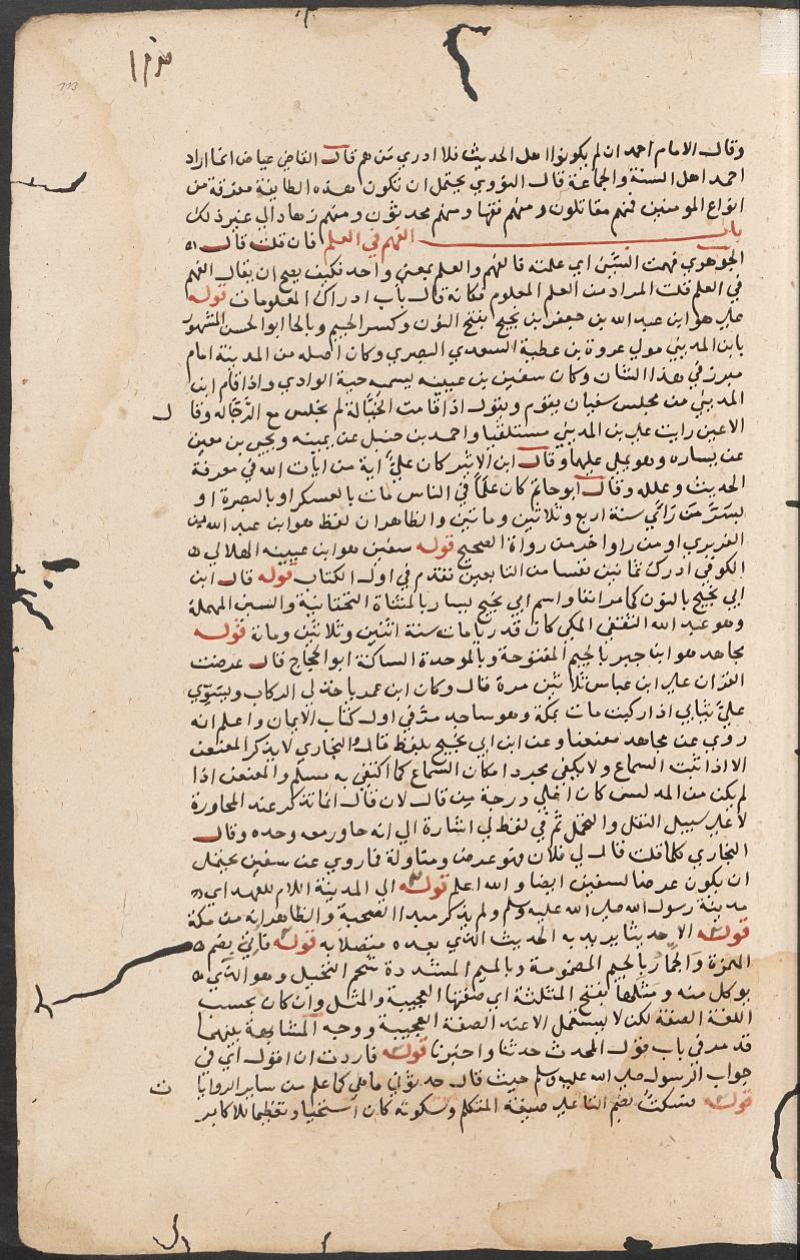 113
وقال الامام احمد ان لم يكونوا اهل الحديث فلا ادري من هم قال القاضي عياض انما اراد
احمد اهل السنة والجماعة قال النووي يحتمل ان تكون هذه الطايفة مفرقة من
انواع المومنين فمنهم مقاتلون ومنهم فقها ومنهم محدثون ومنهم زهاد الي غير ذلك
باب الفهم في العلم فان قلت قال
الجوهري فهمت الشيئ اي علمته فالفهم والعلم بمعني واحد فكيف يصح ان يقال الفهم
في العلم قلت المراد من العلم المعلوم فكانه قال باب ادراك المعلومات قوله
علي هو ابن عبد الله بن جعفر بن نجيح بفتح النون وكسر الجيم وبالحا ابو الحسن المشهور
بابن المديني مولي عروة بن عطية السعدي البصري وكان اصله من المدينة امام
مبرز في هذا الشان وكان سفين بن عيينه يسميه حية الوادي واذا قام ابن
المديني من مجلس سفيان يقوم ويقول اذا قامت الخيالة لم نجلس مع الرجالة وقال
الاعين رايت علي بن المديني مستلقيا واحمد بن حنبل عن يمينه ويحيي بن معين
عن يساره وهو يملي عليهما وقال ابن الاثير كان علي اية من ايات الله في معرفة
الحديث وعلله وقال ابو حاتم كان علما في الناس مات بالعسكر او بالبصرة او
بسر من راي سنة اربع وثلاثين ومايتين والظاهر ان لفظ هو ابن عبد الله من
الفربري او من راو اخر من رواة الصحيح قوله سفين هو ابن عيينه الهلالي
الكوفي ادرك ثمانين نفسا من التابعين تقدم في اول الكتاب قوله قال ابن
ابي نجيح بالنون كما مر انفا واسم ابي نجيح يسار بالمثناة التحتانية والسين المهملة
وهو عبد الله الثقفي المكي كان قدريا مات سنة اثنين وثلاثين وماية قوله
مجاهد هو ابن جبر بالجيم المفتوحة وبالموحدة الساكنة ابو الحجاج قال عرضت
القران علي ابن عباس ثلاثين مرة قال وكان ابن عمر ياخذ لي الركاب ويسوي
علي ثيابي اذا ركبت مات بمكة وهو ساجد مر في اول كتاب الايمان واعلم انه
روي عن مجاهد معنعنا وعن ابن ابي نجيح بلفظ قال والبخاري لا يذكر المعنعن
الا اذا ثبت السماع ولا يكتفي بمجرد امكان السماع كما اكتفي به مسلم والمعنعن اذا
لم يكن من المدلس كان اعلي درجة من قال لان قال انما تذكر عند المحاورة
لا علي سبيل النقل والتحمل ثم في لفظ لي اشارة الي انه حاور معه وحده وقال
البخاري كلما قلت قال لي فلان فهو عرض ومناولة فما روي عن سفين يحتمل
ان يكون عرضا لسفين ايضا والله اعلم قوله الي المدينة اللام للعهد اي
مدينة رسول الله صلي الله عليه وسلم ولم يذكر مبدا الصحبة والظاهر انه من مكة
قوله الا حديثا يريد به الحديث الذي بعده متصلا به قوله فاتي بضم
الهمزة والجمار بالجيم المضمومة وبالميم المشددة شحم النخيل وهو الذي
يوكل منه ومثلها بفتح المثلثة اي صفتها العجيبة والمثل وان كان بحسب
اللغة الصفة لكن لا يستعمل الا عند الصفة العجيبة ووجه المشابهة بينهما
قد مر في باب قول المحدث حدثنا واخبرنا قوله فاردت ان اقول اي في
جواب الرسول صلي الله عليه وسلم حيث قال حدثوني ما هي كما علم من ساير الروايات
قوله فسكت بضم التا علي صيغة المتكلم وسكوته كان استحيا وتعظيما للاكابر